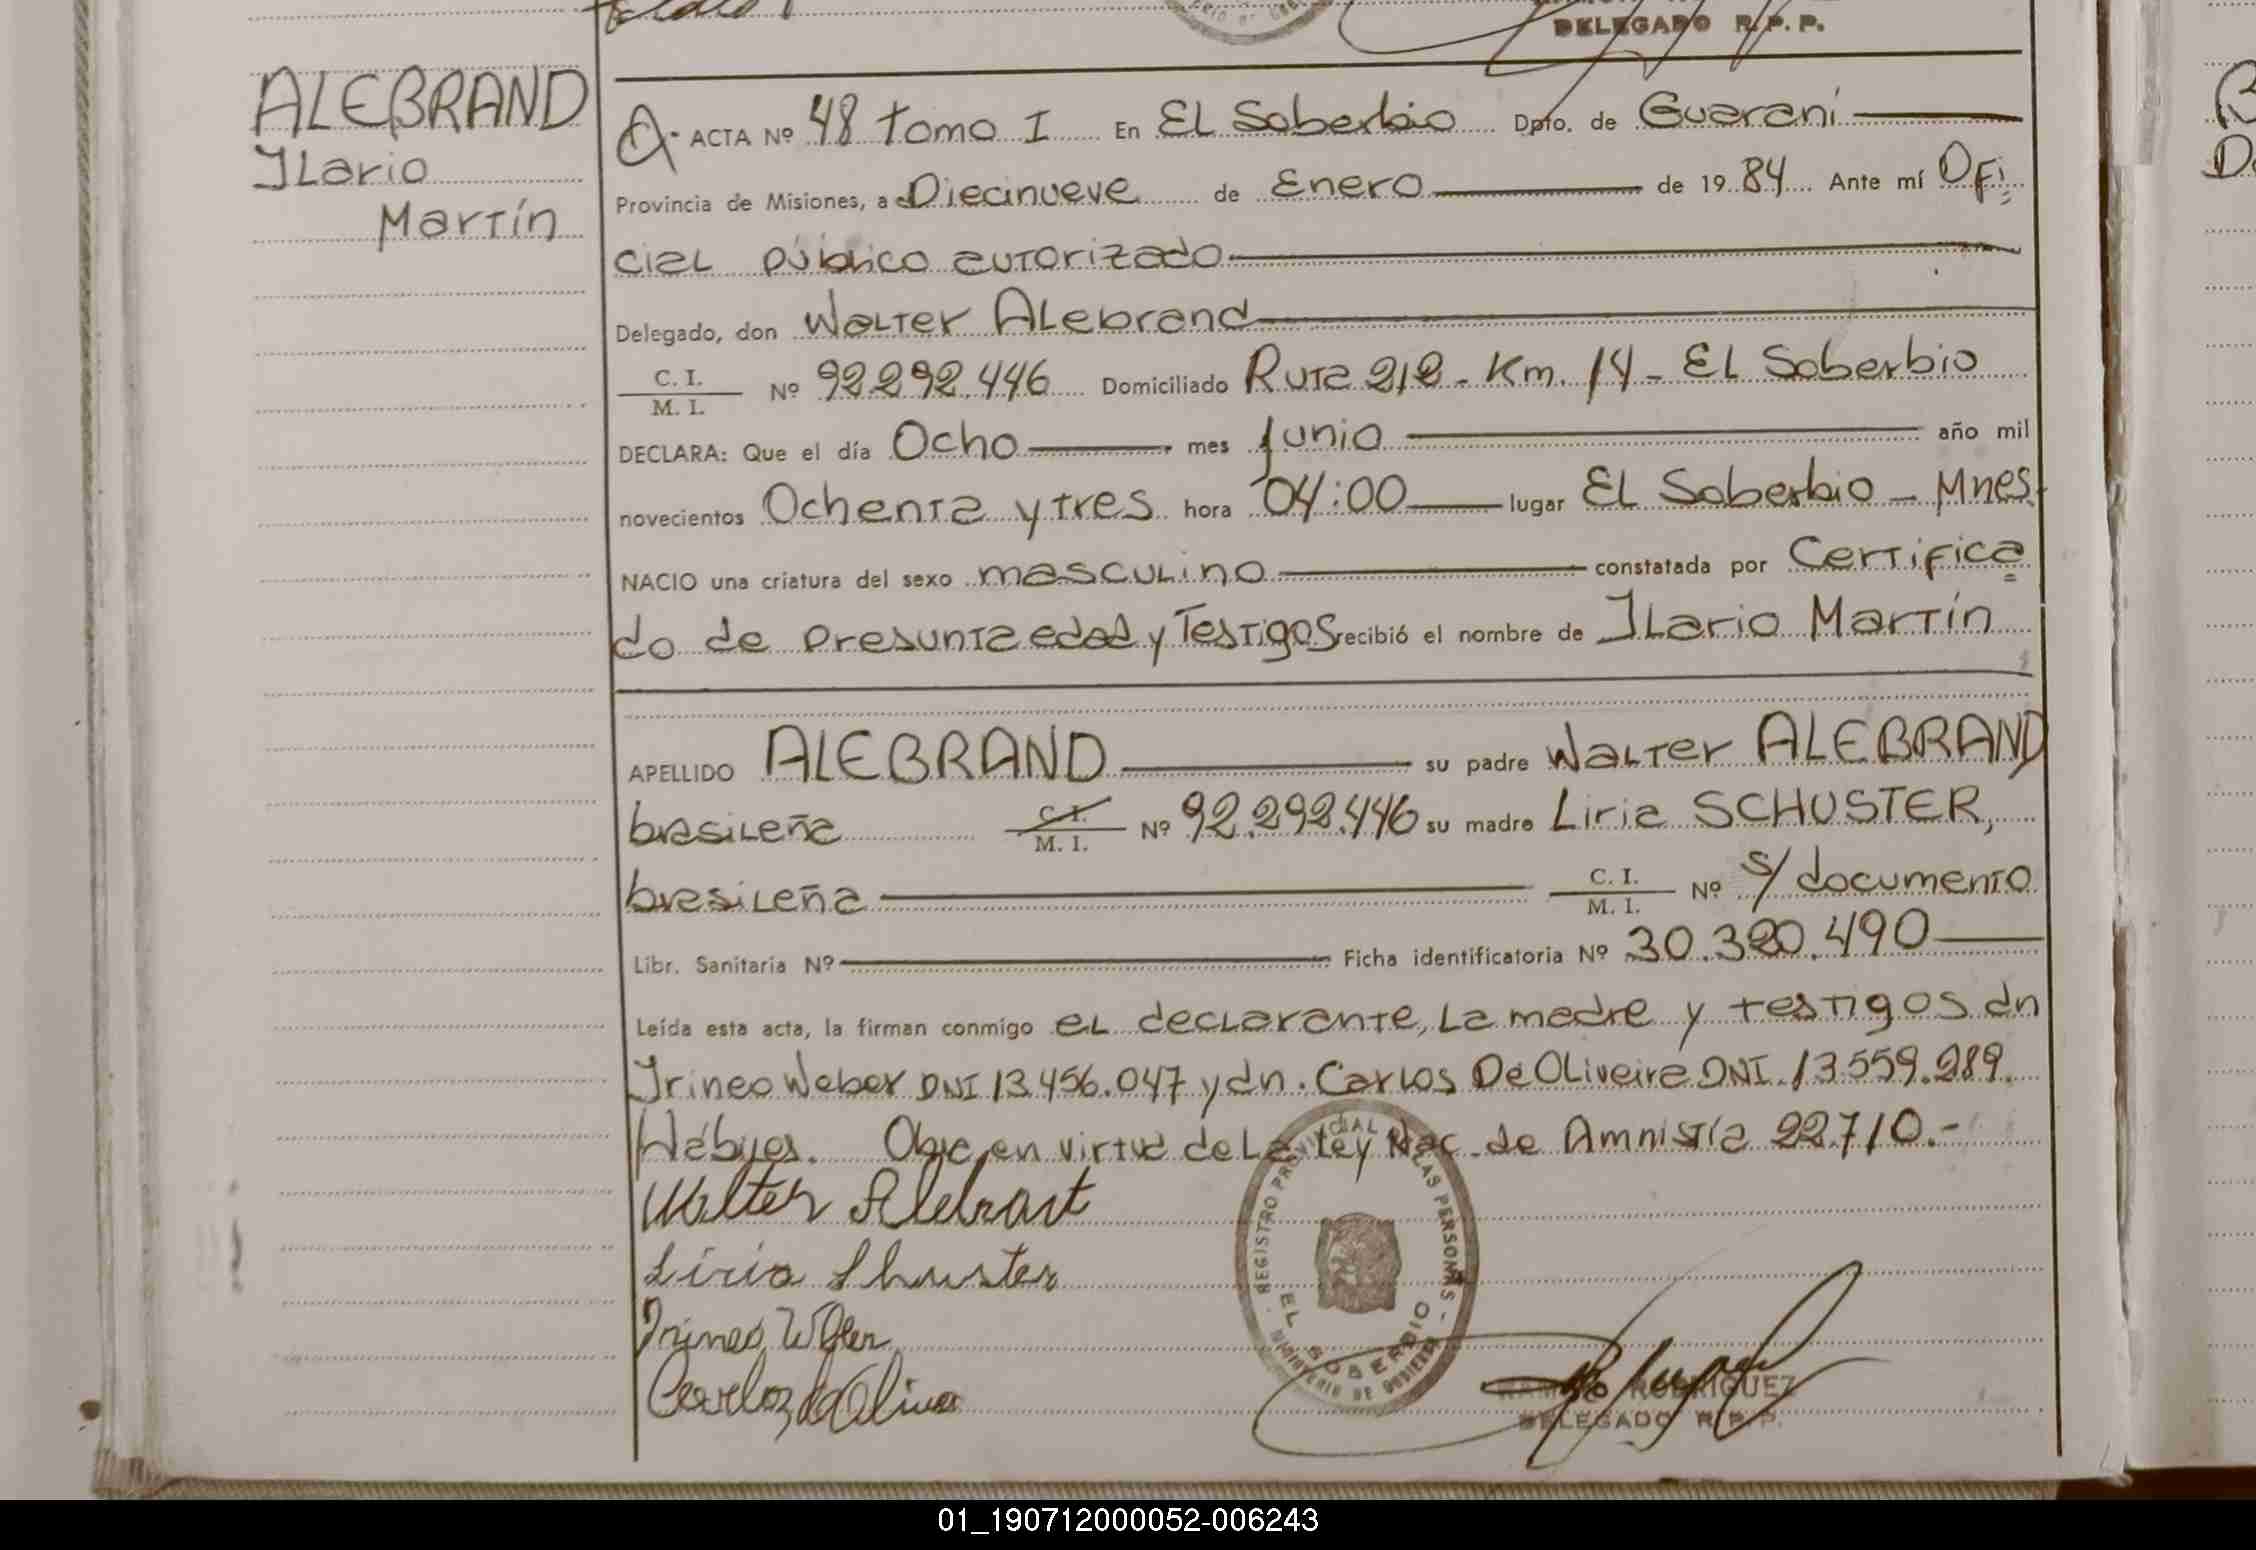 DELEGADO R.P.P.
ALEBRAND
Ilario
Martín
ACTA Nº 48 tomo I En El Soberbio Dpto. de Guaraní
Provincia de Misiones, a Diecinueve de Enero de 1984 Ante mí Ofi
cial público autorizado
Delegado, don Walter Alebrand
C. I. / M. I. Nº 92.292.446 Domiciliado Ruta 212 - Km. 14 - El Soberbio
DECLARA: Que el día Ocho mes Junio año mil
novecientos Ochenta y tres hora 04:00 lugar El Soberbio - Mnes.
NACIO una criatura del sexo masculino constatada por Certifica
do de presunta edad y Testigos recibió el nombre de Ilario Martín
APELLIDO ALEBRAND su padre Walter ALEBRAND
brasileña C. I. / M. I. Nº 92.292.446 su madre Liria SCHUSTER,
brasileña C. I. / M. I. Nº s/documento
Libr. Sanitaria Nº Ficha identificatoria Nº 30.320.490
Leída esta acta, la firman conmigo el declarante, la madre y testigos dn
Irineo Weber DNI 13.456.047 y dn. Carlos De Oliveira DNI 13.559.289.
Hábiles. en virtud de la ley Nac. de Amnistía 22.710.-
Walter Alebrant
Liria Shuster
Irineo Weber
Carlos de Oliveira
REGISTRO PROVINCIAL DE LAS PERSONAS
EL SOBERBIO
MINISTERIO DE GOBIERNO
RAMON RODRIGUEZ
DELEGADO R.P.P.
01_190712000052-006243